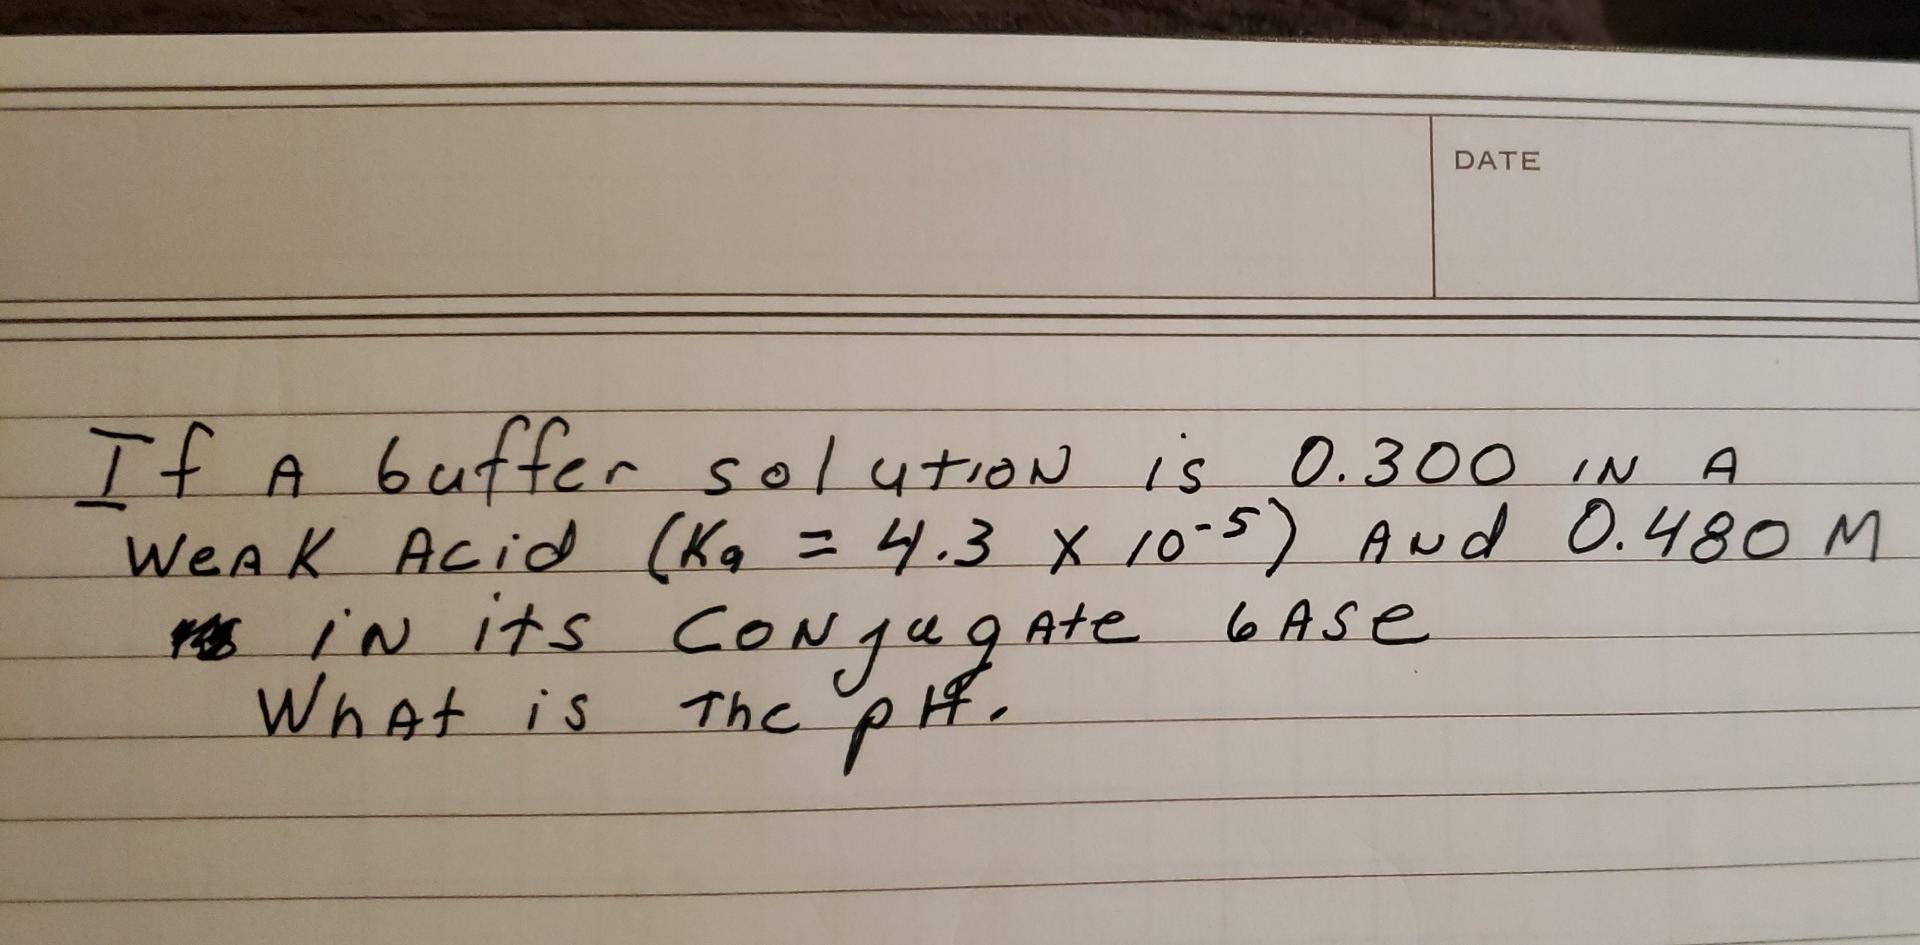 DATE
If A buffer solution is 0.300 in A
Weak Acid (Ka = 4.3 x 10-5) And 0.480 M
in its conjugate base
What is The pH.